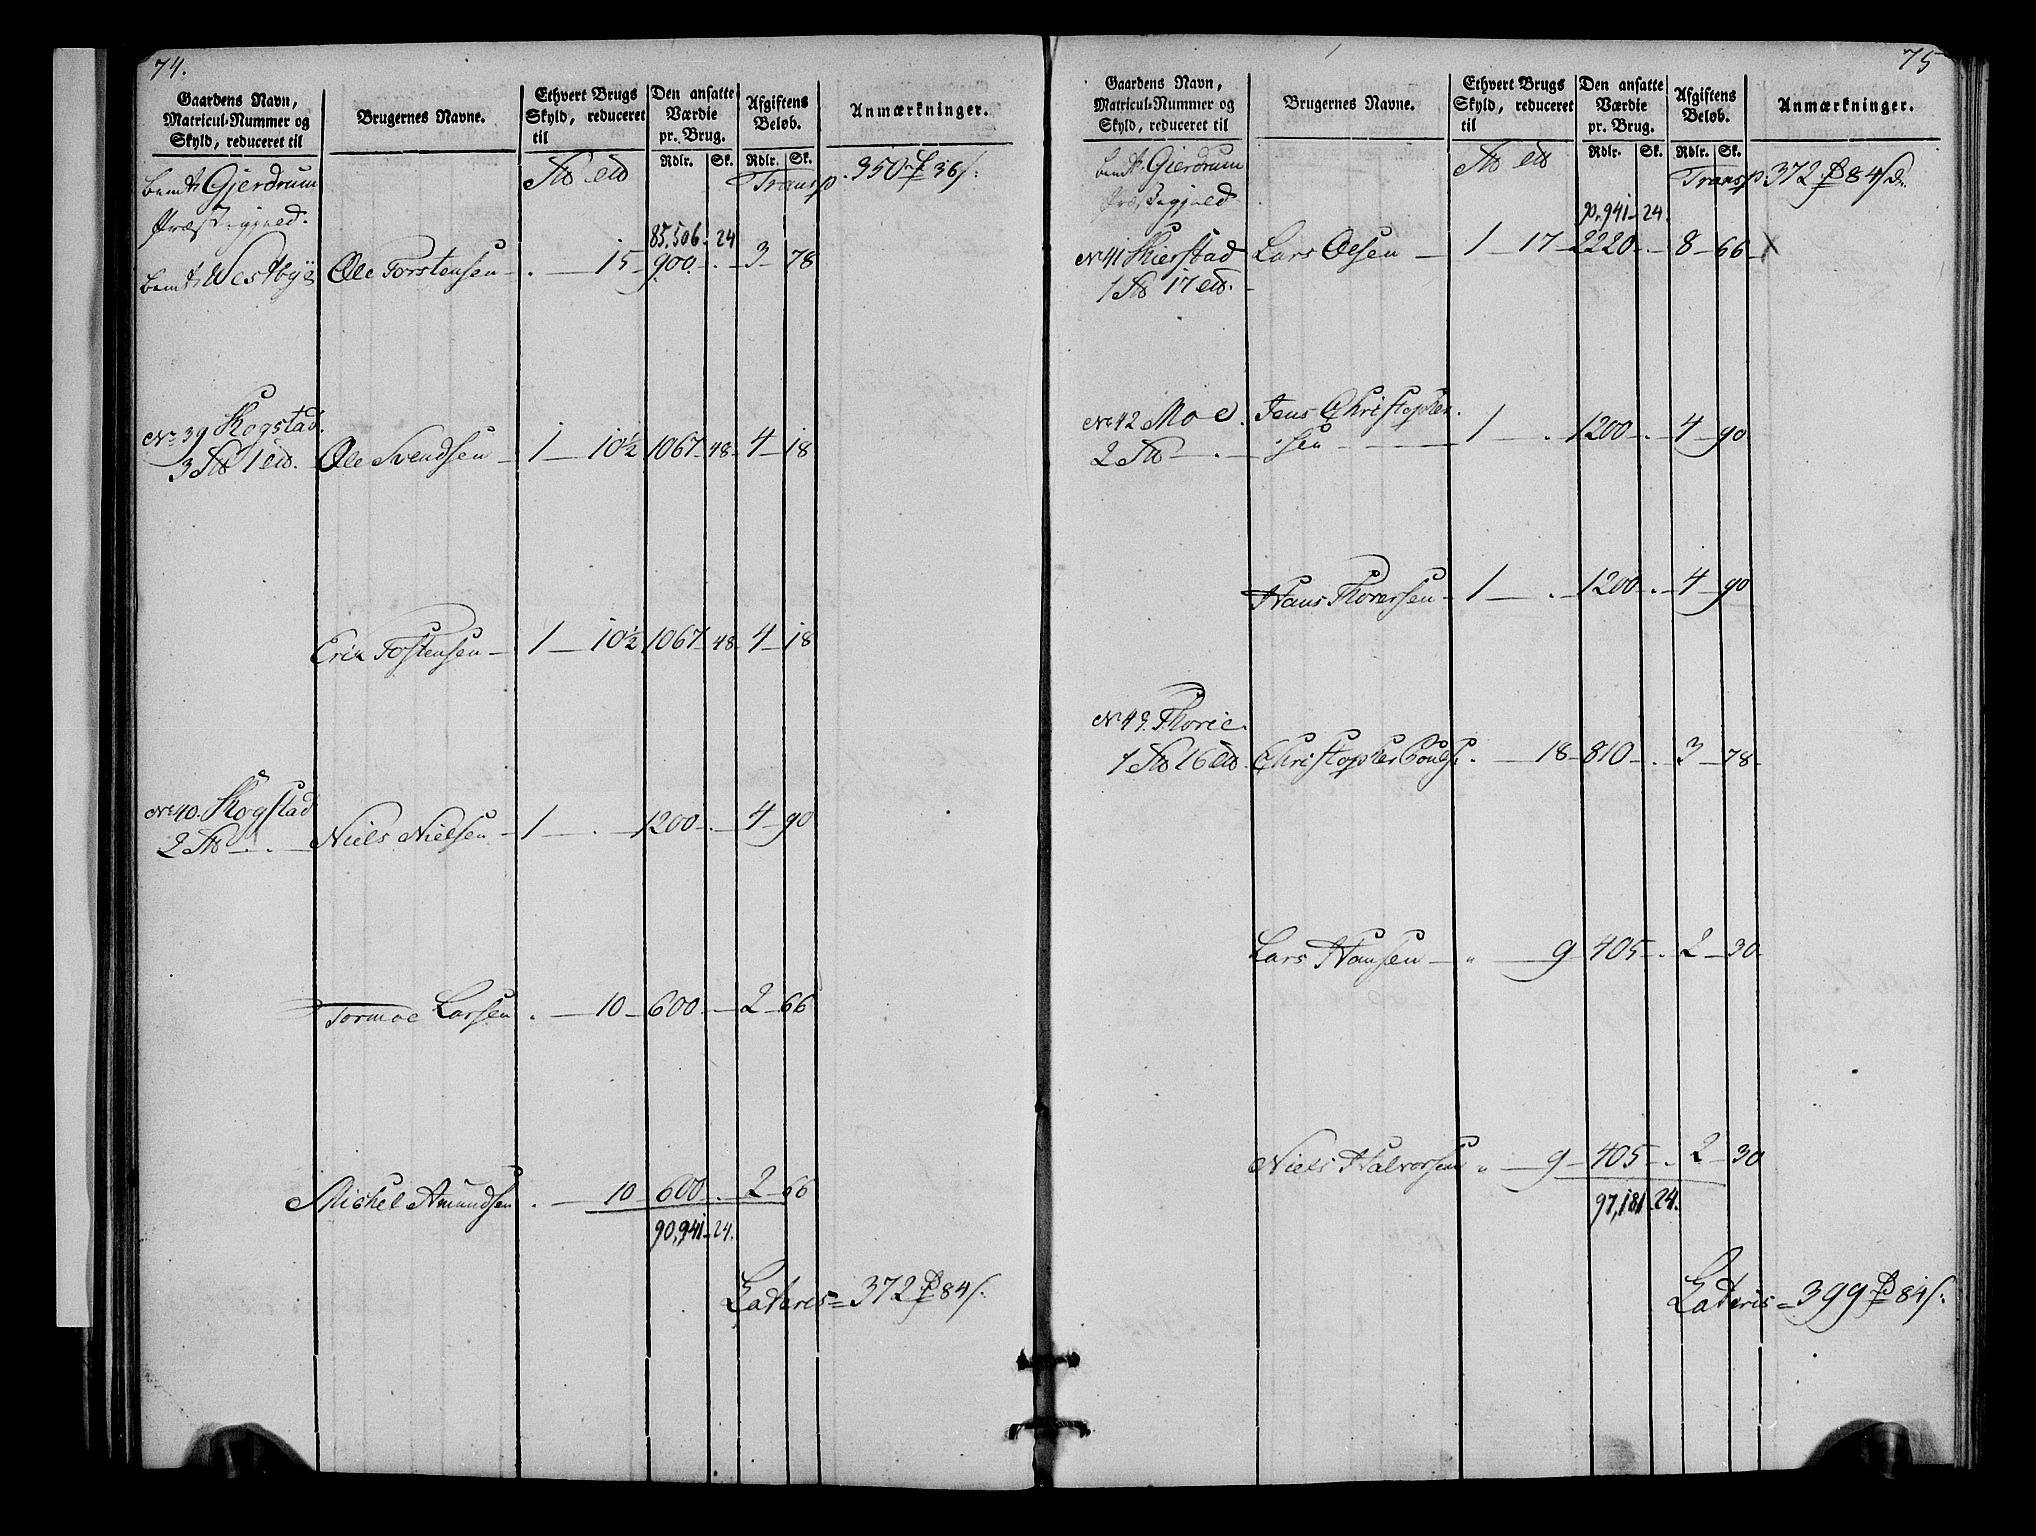 74.
Gaardens Navn, Matricul-Nummer og Skyld, reduceret til
Brugernes Navne.
Ethvert Brugs Skyld, reduceret til
Den ansatte Værdie pr. Brug.
Afgiftens Beløb.
Anmærkninger.
Rdlr. Sk. Rdlr. Sk.
bemte Gjerdrum Transp. 350 36
Præstegjeld.
85,506 - 24
bemte Westbye Ole Torstensen - . - 15 - 900 - . - 3 - 78
No 39 Skogstad.
3 1 Ole Svendsen - 1 - 10½ 1067 - 48 - 4 - 18
Erik Tostensen - 1 - 10½ 1067 - 48 - 4 - 18
No 40. Skogstad
2 Niels Nielsen - 1 - . - 1200 - . - 4 - 90
Tormoe Larsen . - 10 - 600 - . - 2 - 66
Michel Amundsen . - 10 600 - . - 2 - 66
90,941 - 24.
Lateris = 372 84
75
Gaardens Navn, Matricul-Nummer og Skyld, reduceret til
Brugernes Navne.
Ethvert Brugs Skyld, reduceret til
Den ansatte Værdie pr. Brug.
Afgiftens Beløb.
Anmærkninger.
Rdlr. Sk. Rdlr. Sk.
bemte Gjerdrum Transp 372 84
Præstegjeld
90,941 - 24.
No 41 Skierstad Lars Olsen - 1 - 17 - 2220 - . - 8 - 66
1 17
No 42 Moe. Jens Christopher-
2 sen - 1 - . - 1200 - . - 4 - 90
Hans Thoresen - 1 - . - 1200 - . - 4 - 90
No 49. Thorie
1 16 Christopher Pouls . - 18 - 810 - . - 3 - 78
Lars Hansen - " - 9 - 405 - . - 2 - 30
Niels Halvorsen " - 9 - 405 - . 2 - 30
97,181 - 24.
Lateris = 399 84